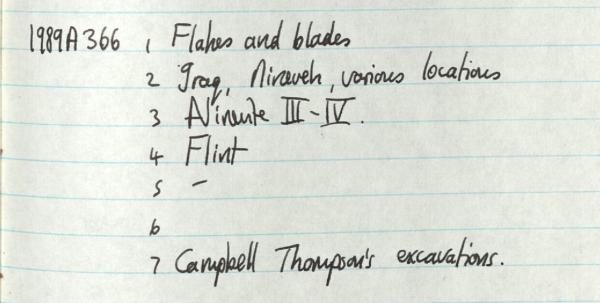 1989A366 1 Flakes and blades
2 Iraq, Nineveh, various locations
3 Ninevite III - IV.
4 Flint
5 -
6
7 Campbell Thompson's excavations.